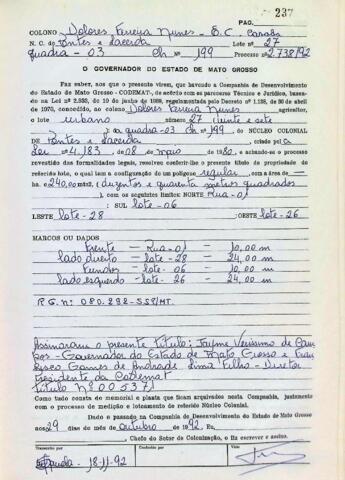 PAG. 237
COLONO Dolores Pereira Nunes - E.C. Casada
N. C. de Pontes e Lacerda Lote nº 27
quadra - 03 Ch nº 199 Processo nº 2.738/92
O GOVERNADOR DO ESTADO DE MATO GROSSO
Faz saber, aos que o presente virem, que havendo a Companhia de Desenvolvimento
do Estado de Mato Grosso - CODEMAT-, de acôrdo com os pareceres Técnico e Jurídico, baseado
na Lei nº 2.925, de 10 de junho de 1969, regulamentada pelo Decreto nº 1.138, de 30 de abril
de 1970, concedido ao colono Dolores Pereira Nunes agricultor,
o lote urbano número 27 (vinte e sete
); da quadra-03 Ch nº 199. do NÚCLEO COLONIAL
DE Pontes e Lacerda criado pela
Lei nº 4.183, de 08 de maio de 1980, e achando-se o processo
revestido das formalidades legais, resolveu conferir-lhe o presente título de propriedade do
referido lote, o qual tem a configuração de um polígono regular com a área de
ha 240,00 mts2, (duzentos e quarenta metros quadrados
), com os seguintes limites: NORTE Rua-01
SUL lote-06
LESTE lote-28 OESTE lote-26
MARCOS OU DADOS
Frente - Rua-01 - 10,00 m
lado direito - lote-28 - 24,00 m
Fundos - lote-06 - 10,00 m
lado esquerdo - lote-26 - 24,00 m
R.G. nº: 080.292-SSP/MT.
Assinaram o presente título: Jayme Verissimo de Cam
pos - Governador do Estado de Mato Grosso e Fran
cisco Gomes de Andrade Lima Filho - Diretor
Presidente da Codemat
Título nº 005371
Como tudo consta do memorial e planta que ficam arquivados nesta Companhia, juntamente
com o processo de medição e loteamento do referido Núcleo Colonial.
Dado e passado na Companhia de Desenvolvimento do Estado de Mato Grosso
aos 29 dias do mês de outubro de 1992. Eu,
, Chefe do Setor de Colonização, o fiz escrever e assino.
Transcrito por Conferido por Visto
18-11-92